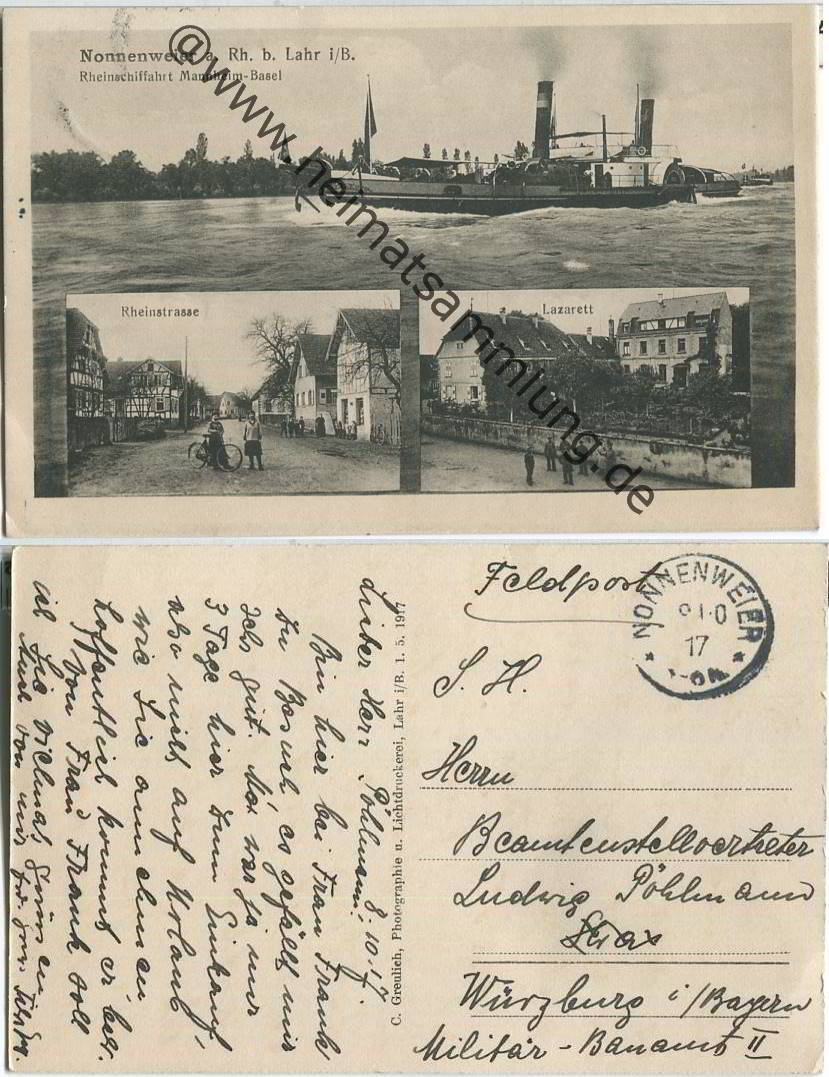 Nonnenweier a. Rh. b. Lahr i/B.
Rheinschiffahrt Mannheim-Basel
@www.heimatsammlung.de
Rheinstrasse
Lazarett
Feldpost
NONNENWEIER
17
S. H.
Herrn
Beamtenstellvertreter
Ludwig Pöhlmann
Würzburg i/Bayern
Militär-Bauamt II
C. Greulich, Photographie u. Lichtdruckerei, Lahr i/B. 1. 5. 1917
8.10.17.
Lieber Herr Pöhlmann!
Bin hier bei Frau Frank
zu Besuch es gefällt mir
sehr gut. Max war ja nur
3 Tage hier zum Einkauf,
also nicht auf Urlaub
wie Sie annehmen
hoffentlich kommt er bald.
Von Frau Frank soll
ich Sie vielmals grüssen
Auch von mir